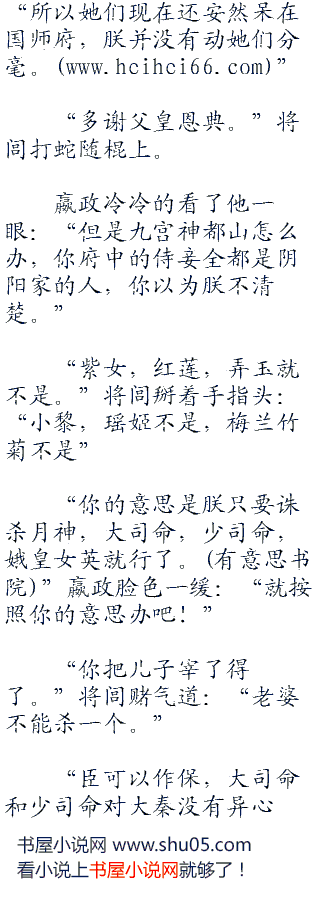 “所以她们现在还安然呆在
国师府，朕并没有动她们分
毫。(www.hcihci66.com)”
“多谢父皇恩典。”将
闾打蛇随棍上。
嬴政冷冷的看了他一
眼：“但是九宫神都山怎么
办，你府中的侍妾全都是阴
阳家的人，你以为朕不清
楚。”
“紫女，红莲，弄玉就
不是。”将闾掰着手指头：
“小黎，瑶姬不是，梅兰竹
菊不是”
“你的意思是朕只要诛
杀月神，大司命，少司命，
娥皇女英就行了。(有意思书
院)”嬴政脸色一缓：“就按
照你的意思办吧！”
“你把儿子宰了得
了。”将闾赌气道：“老婆
不能杀一个。”
“臣可以作保，大司命
和少司命对大秦没有异心
书屋小说网 www.shu05.com
看小说上书屋小说网就够了！